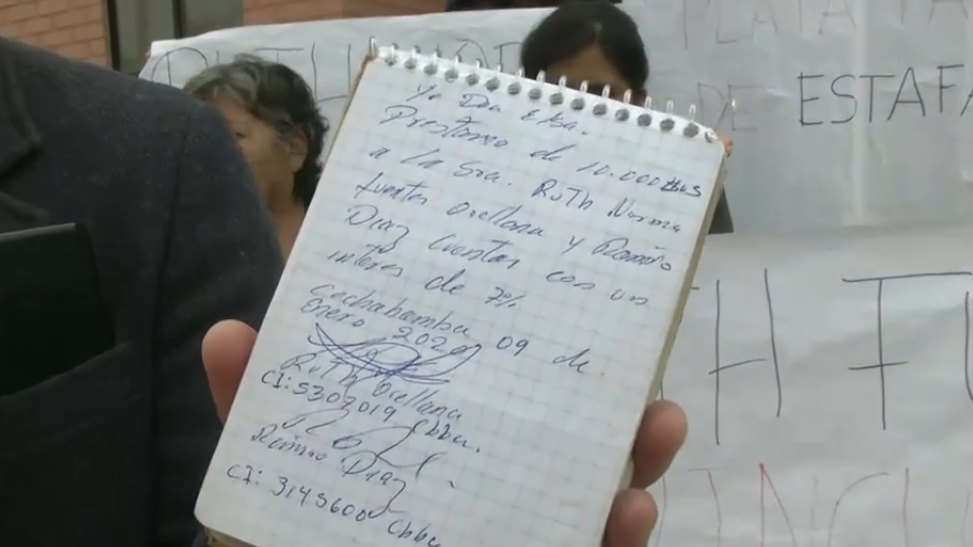 Yo Dña Elsa.
Prestamo de 10.000 $us
a la Sra. Ruth Norma
fuentes Orellana y Ramiro
Diaz Cuentas con un
interes de 7%
Cochabamba 09 de
Enero 2020
Ruth Orellana
CI: 5307019 Cbba.
Ramiro Diaz
CI: 3145600 Cbba
RUTH
PLATA
DE ESTAFA
TH FU
INCU